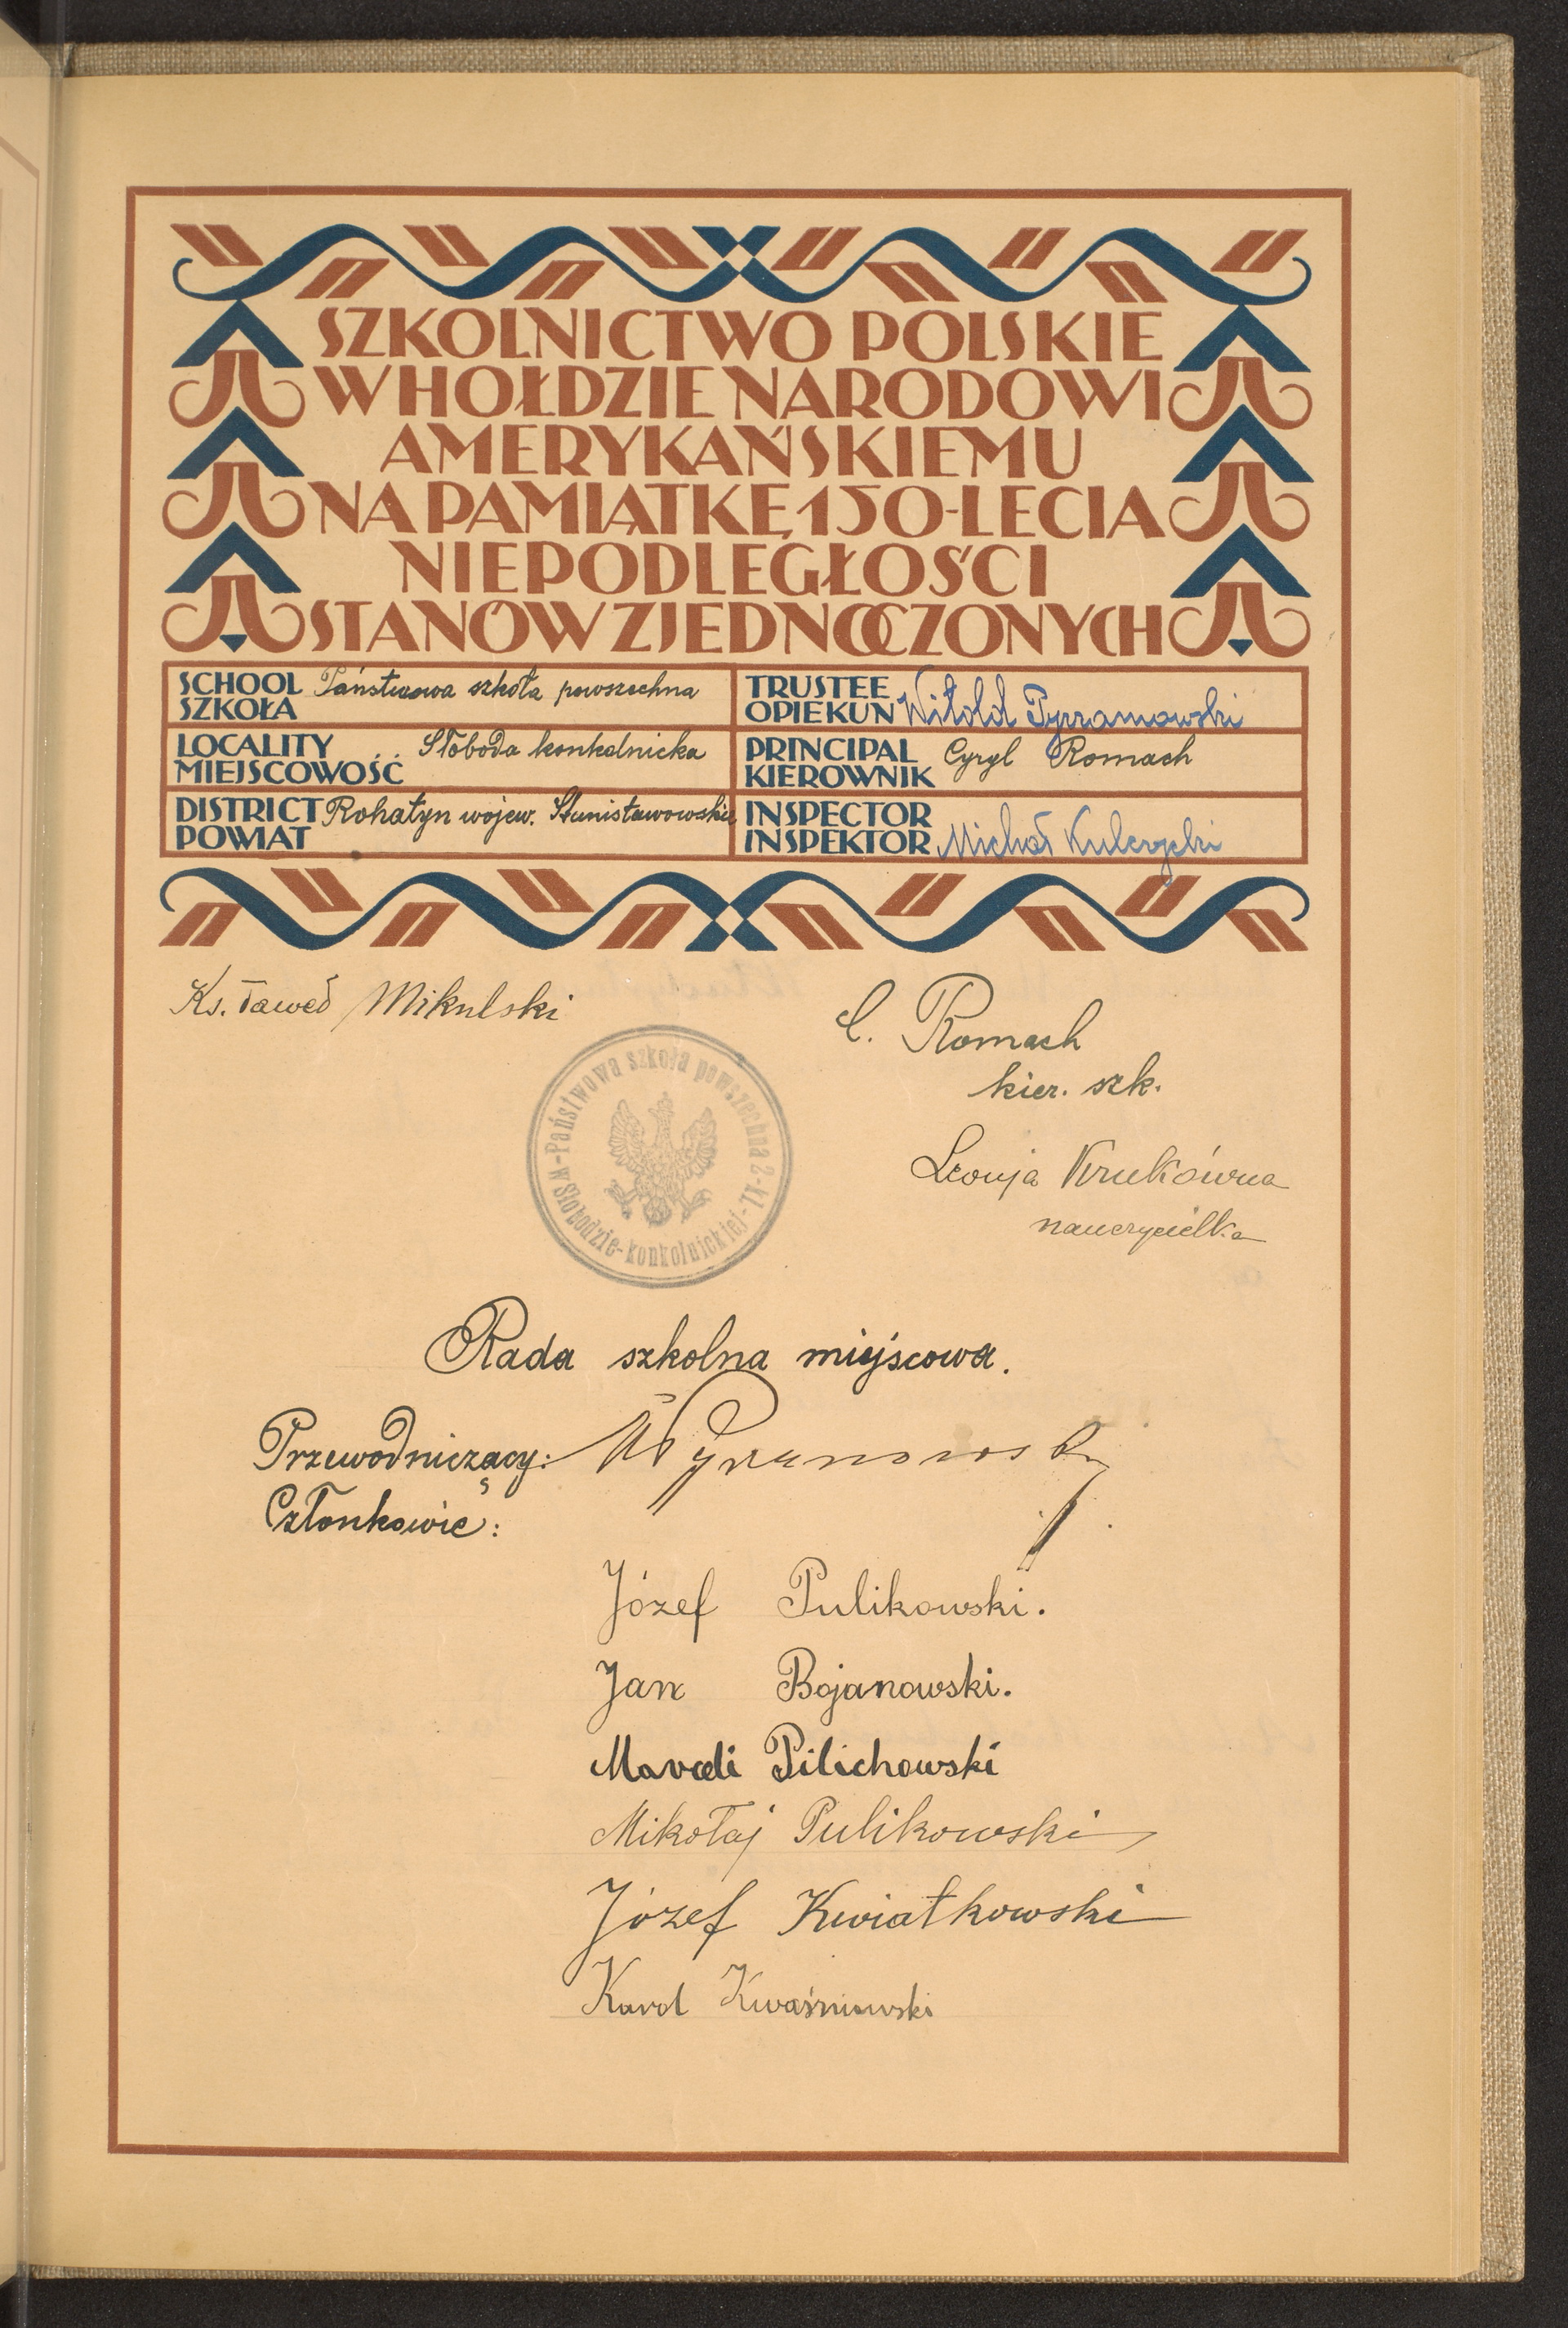 SZKOLNICTWO POLSKIE
W HOŁDZIE NARODOWI
AMERYKAŃSKIEMU
NA PAMIĄTKĘ 150-LECIA
NIEPODLEGŁOŚCI
STANÓW ZJEDNOCZONYCH
SCHOOL
SZKOŁA Państwowa szkoła powszechna
TRUSTEE
OPIEKUN Witold Pyrzanowski
LOCALITY
MIEJSCOWOŚĆ Słoboda konkolnicka
PRINCIPAL
KIEROWNIK Cyryl Romach
DISTRICT
POWIAT Rohatyn wojew. Stanisławowskie
INSPECTOR
INSPEKTOR Michał Kulczycki
Ks. Paweł Mikulski
C. Romach
kier. szk.
Państwowa szkoła powszechna 2-kl.- w Słobodzie-konkolnickiej-
Leonja Krukówna
nauczycielka
Rada szkolna miejscowa.
Przewodniczący:
Członkowie:
Józef Pulikowski.
Jan Bojanowski.
Pilichowski
Mikołaj Pulikowski
Józef Kwiatkowski
Karol Kwaśniowski